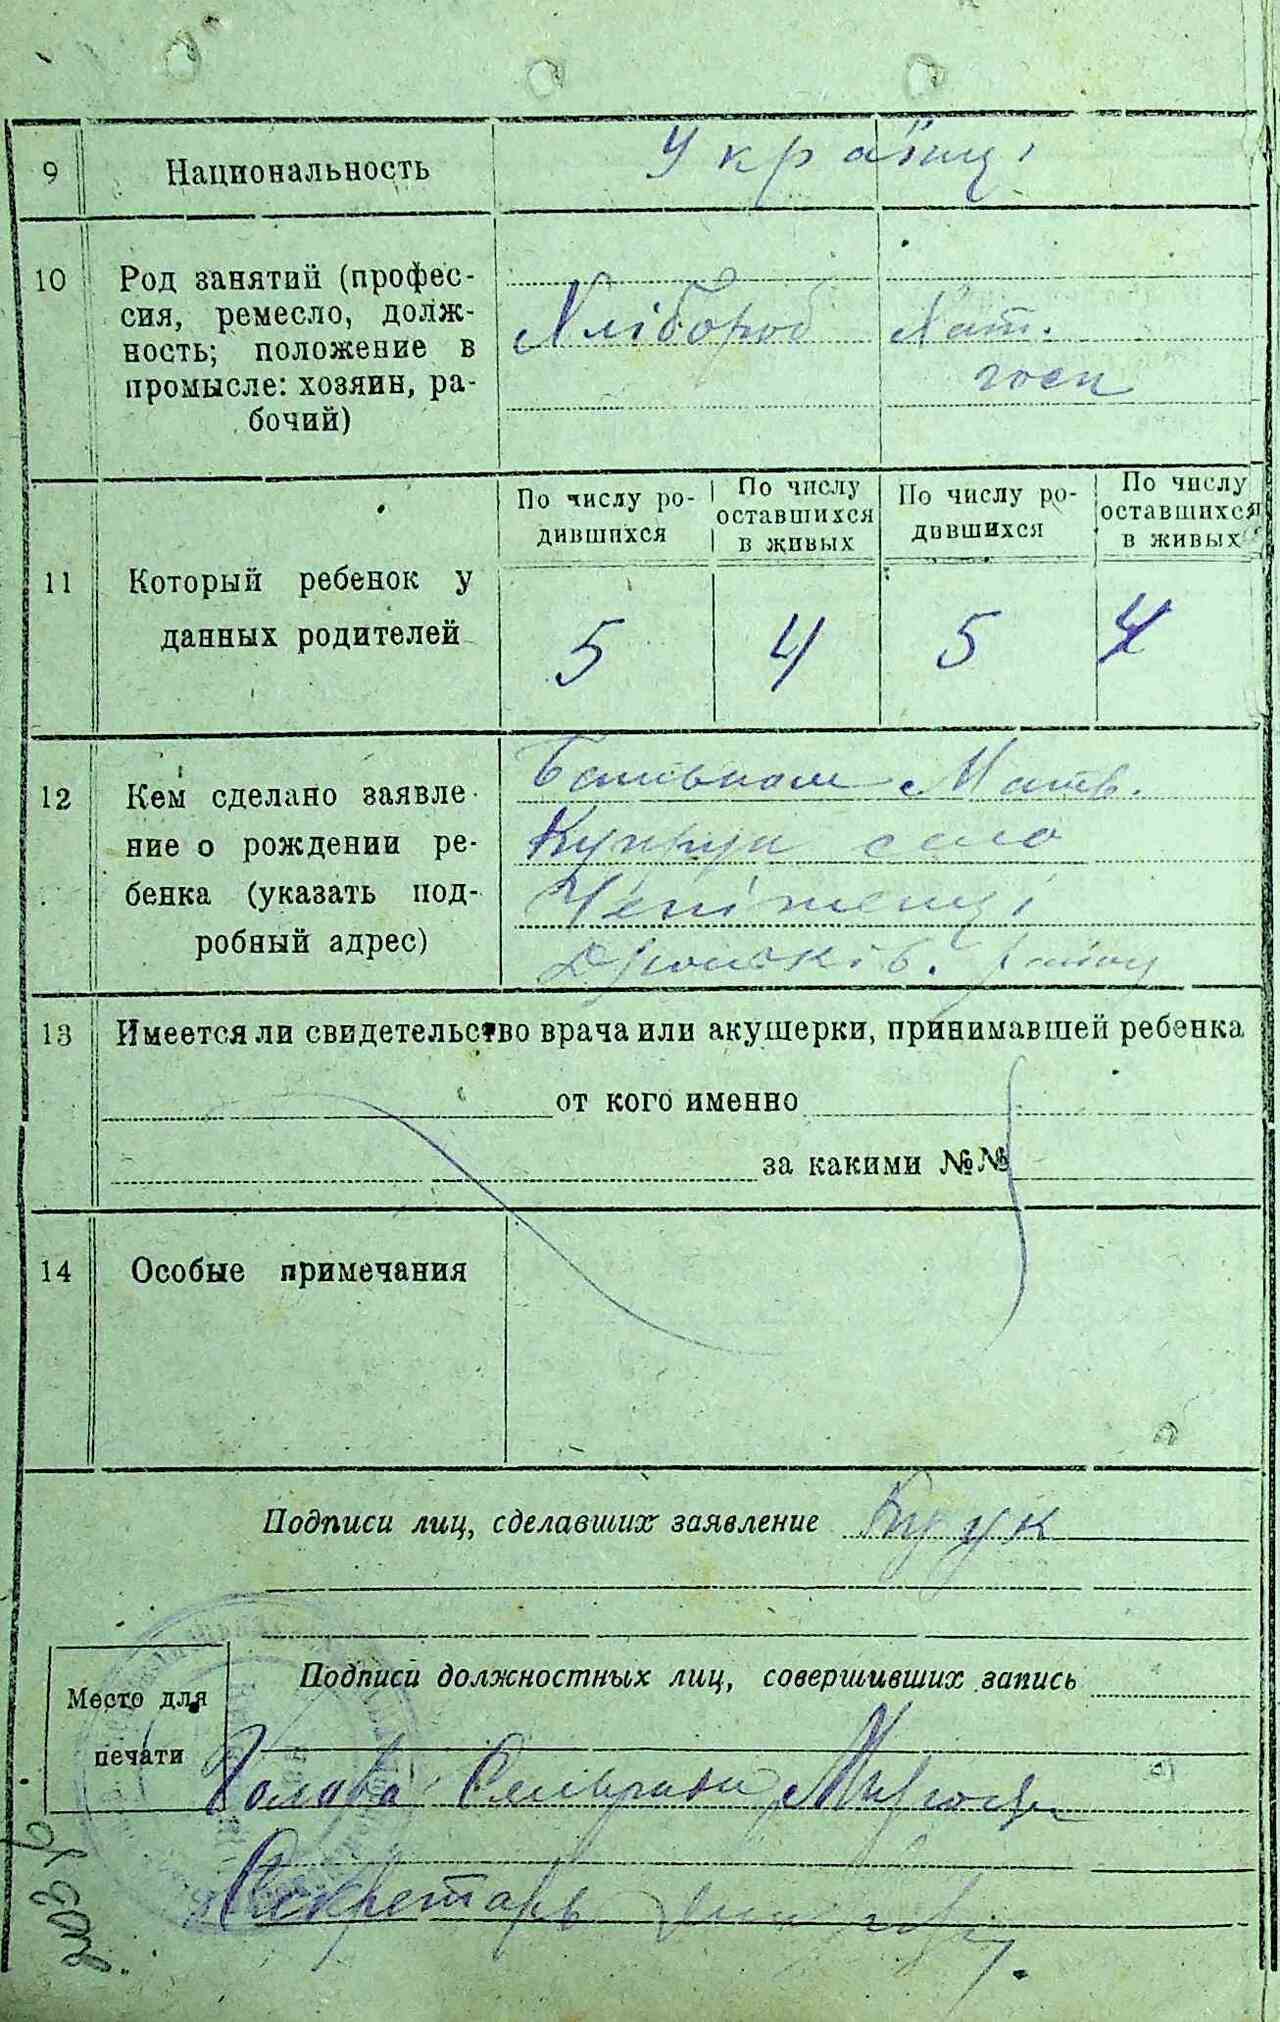 9 Национальность Українці
10 Род занятий (профес-
сия, ремесло, долж-
ность; положение в
промысле: хозяин, ра-
бочий)
Хлібороб Хат.
госп
По числу ро-
дившихся
По числу
оставшихся
в живых
По числу ро-
дившихся
По числу
оставшихся
в живых
11 Который ребенок у
данных родителей
5 4 5 4
12 Кем сделано заявле-
ние о рождении ре-
бенка (указать под-
робный адрес)
Батьком Матв.
село
району
13 Имеется ли свидетельство врача или акушерки, принимавшей ребенка
от кого именно
за какими №№
14 Особые примечания
Подписи лиц, сделавших заявление
Место для
печати
Подписи должностных лиц, совершивших запись
Голова Сельради
Секретарь